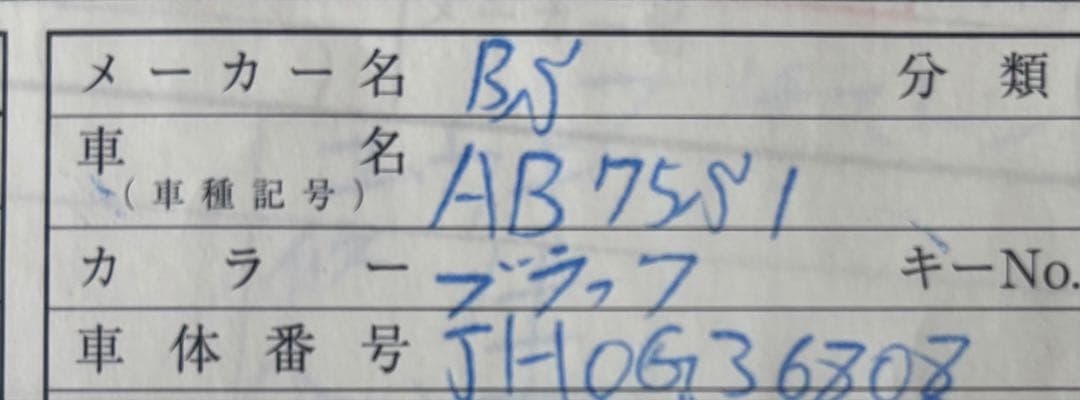 メーカー名 BS 分類
車名 AB75S1
(車種記号)
カラー ブラック キーNo.
車体番号 JH0G36808